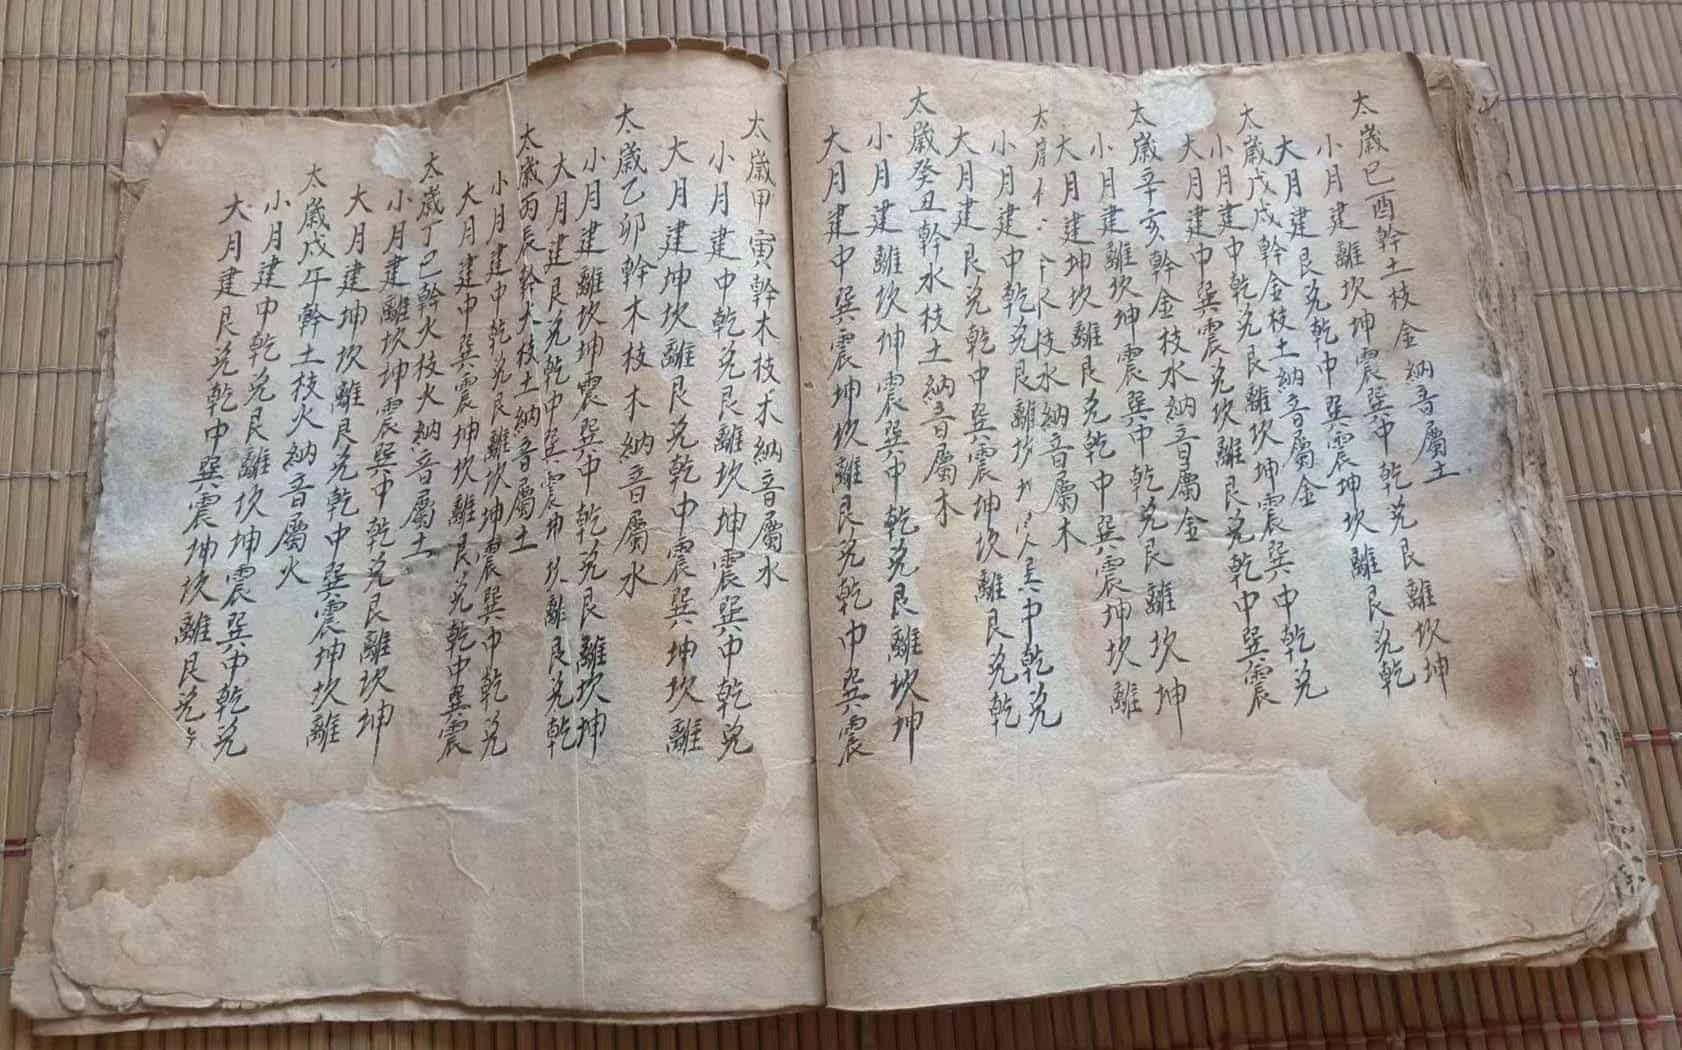 太歲己酉幹土枝金納音屬土
小月建離坎坤震巽中乾兌艮離坎坤
大月建艮兌乾中巽震坤坎離艮兌乾
太歲戊戌幹金枝土納音屬金
小月建中乾兌艮離坎坤震巽中乾兌
大月建中巽震兌坎離艮兌乾中巽震
太歲辛亥幹金枝水納音屬金
小月建離坎坤震巽中乾兌艮離坎坤
大月建坤坎離艮兌乾中巽震坤坎離
太歲水枝水納音屬木
小月建中乾兌艮離坎巽中乾兌
大月建艮兌乾中巽震坤坎離艮兌乾
太歲癸丑幹水枝土納音屬木
小月建離坎坤震巽中乾兌艮離坎坤
大月建中巽震坤坎離艮兌乾中巽震
太歲甲寅幹木枝木納音屬水
小月建中乾兌艮離坎坤震巽中乾兌
大月建坤坎離艮兌乾中震巽坤坎離
太歲乙卯幹木枝木納音屬水
小月建離坎坤震巽中乾兌艮離坎坤
大月建艮兌乾中巽震坤坎離艮兌乾
太歲丙辰幹火枝土納音屬土
小月建中乾兌艮離坎坤震巽中乾兌
大月建中巽震坤坎離艮兌乾中巽震
太歲丁巳幹火枝火納音屬土
小月建離坎坤震巽中乾兌艮離坎坤
大月建坤坎離艮兌乾中巽震坤坎離
太歲戊午幹土枝火納音屬火
小月建中乾兌艮離坎坤震巽中乾兌
大月建艮兌乾中巽震坤坎離艮兌